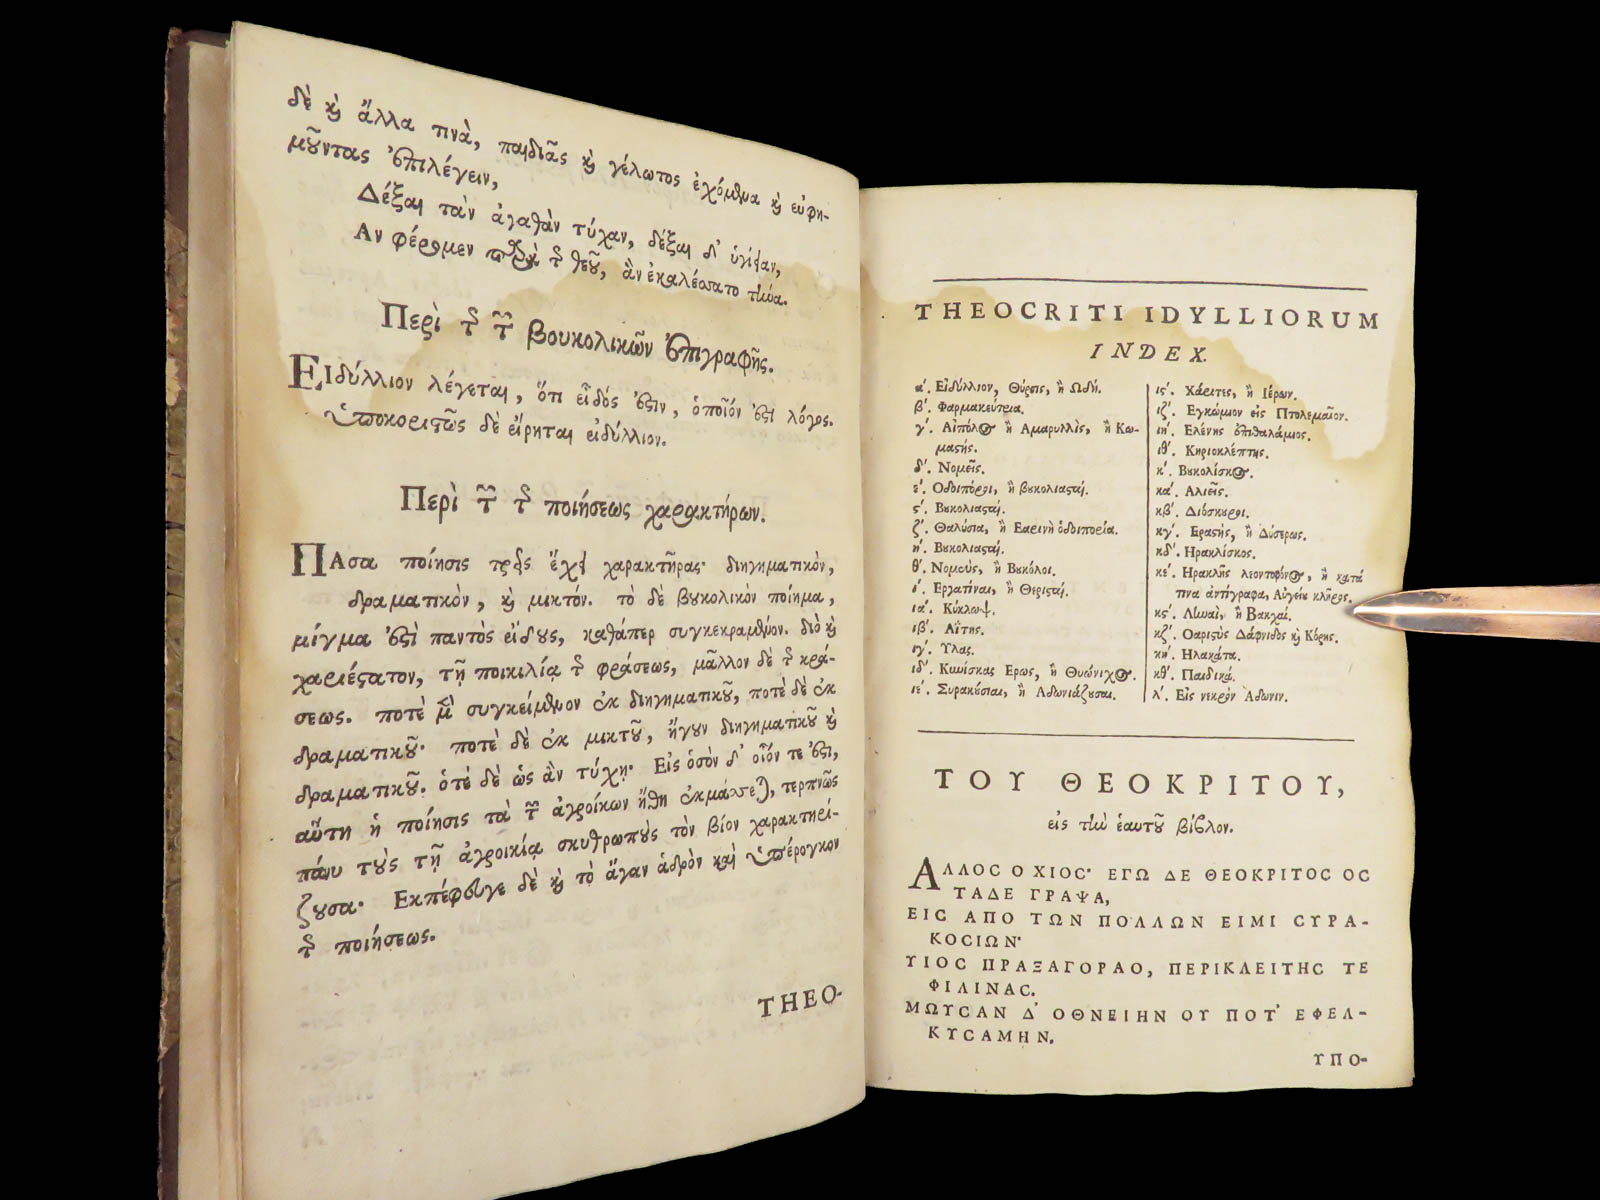 δὲ καὶ ἄλλα τινὰ, παιδιᾶς καὶ γέλωτος ἐχόμενα καὶ εὐφη-
μοῦντας ἐπιλέγειν,
Δέξαι τὰν ἀγαθὰν τύχαν, δέξαι δ' ὑγίειαν,
Ἃν φέρομεν παρὰ τῆς θεοῦ, ἃν ἐκαλέσατο τήνα.
Περὶ τῆς τῶν βουκολικῶν ἐπιγραφῆς.
ΕΙδύλλιον λέγεται, ὅτι εἶδός ἐστιν, ὁποῖόν ἐστι λόγος.
ὑποκοριστικῶς δὲ εἴρηται εἰδύλλιον.
Περὶ τῶν τῆς ποιήσεως χαρακτήρων.
ΠΑσα ποίησις τρεῖς ἔχει χαρακτῆρας· διηγηματικὸν,
δραματικὸν, καὶ μικτόν. τὸ δὲ βουκολικὸν ποίημα,
μίγμα ἐστὶ παντὸς εἴδους, καθάπερ συγκεκραμένον. διὸ καὶ
χαριέστατον, τῇ ποικιλίᾳ τῆς φράσεως, μᾶλλον δὲ τῆς κρά-
σεως. ποτὲ μὲν συγκείμενον ἐκ διηγηματικοῦ, ποτὲ δὲ ἐκ
δραματικοῦ· ποτὲ δὲ ἐκ μικτοῦ, ἤγουν διηγηματικοῦ καὶ
δραματικοῦ. ὁτὲ δὲ ὡς ἂν τύχῃ· Εἰς ὁσὸν δ' οἷόν τε ἐστι,
αὕτη ἡ ποίησις τὰ τῶν ἀγροίκων ἤθη ἐκμάσσεται, τερπνῶς
πάνυ τοὺς τῇ ἀγροικίᾳ σκυθρωποὺς τὸν βίον χαρακτηρί-
ζουσα· Εκπέφευγε δὲ καὶ τὸ ἄγαν ἁδρὸν καὶ ὑπέρογκον
τῆς ποιήσεως.
THEO-
THEOCRITI IDYLLIORUM
INDEX.
α'. Εἰδύλλιον, Θύρσις, ἢ Ωδή.
β'. Φαρμακεύτρια.
γ'. Αἰπόλος ἢ Αμαρυλλὶς, ἢ Κω-
μαστής.
δ'. Νομεῖς.
ε'. Οδοιπόροι, ἢ βουκολιασταί.
ϛ'. Βουκολιασταί.
ζ'. Θαλύσια, ἢ Εαρινὴ ὁδοιπορία.
η'. Βουκολιασταί.
θ'. Νομοὺς, ἢ Βουκόλοι.
ι'. Εργατίναι, ἢ Θερισταί.
ια'. Κύκλωψ.
ιβ'. Αΐτης.
ιγ'. Υλας.
ιδ'. Κυνίσκας Ερως, ἢ Θυώνιχος.
ιε'. Συρακούσιαι, ἢ Αδωνιάζουσαι.
ιϛ'. Χάριτες, ἢ Ιέρων.
ιζ'. Εγκώμιον εἰς Πτολεμαῖον.
ιη'. Ελένης ἐπιθαλάμιος.
ιθ'. Κηριοκλέπτης.
κ'. Βουκολίσκος.
κα'. Αλιεῖς.
κβ'. Διόσκουροι.
κγ'. Εραστὴς, ἢ Δύσερως.
κδ'. Ηρακλίσκος.
κε'. Ηρακλῆς λεοντοφόνος, ἢ κατά
τινα ἀντίγραφα, Αὐγείου κλῆρος.
κϛ'. Λῆναι, ἢ Βακχαί.
κζ'. Οαριστὺς Δάφνιδος καὶ Κόρης.
κη'. Ηλακάτα.
κθ'. Παιδικά.
λ'. Εἰς νεκρὸν Αδωνιν.
ΤΟΥ ΘΕΟΚΡΙΤΟΥ,
εἰς τὴν ἑαυτοῦ βίβλον.
ΑΛΛΟϹ Ο ΧΙΟϹ· ΕΓΩ ΔΕ ΘΕΟΚΡΙΤΟϹ ΟϹ
ΤΑΔΕ ΓΡΑΨΑ,
ΕΙϹ ΑΠΟ ΤΩΝ ΠΟΛΛΩΝ ΕΙΜΙ ϹΥΡΑ-
ΚΟϹΙΩΝ·
ΥΙΟϹ ΠΡΑΞΑΓΟΡΑΟ, ΠΕΡΙΚΛΕΙΤΗϹ ΤΕ
ΦΙΛΙΝΑϹ.
ΜΩΥϹΑΝ Δ' ΟΘΝΕΙΗΝ ΟΥ ΠΟΤ' ΕΦΕΛ-
ΚΥϹΑΜΗΝ.
ΥΠΟ-